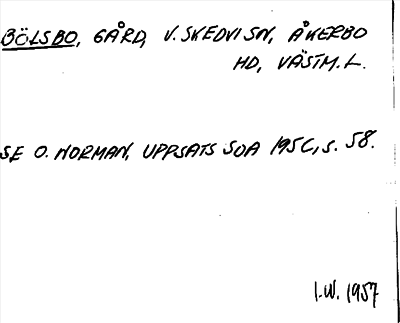 BÖLSBO, GÅRD, V. SKEDVI SN, ÅKERBO
HD, VÄSTM. L.
SE O. NORMAN, UPPSATS SOA 1956, S. 58.
I.W. 1957